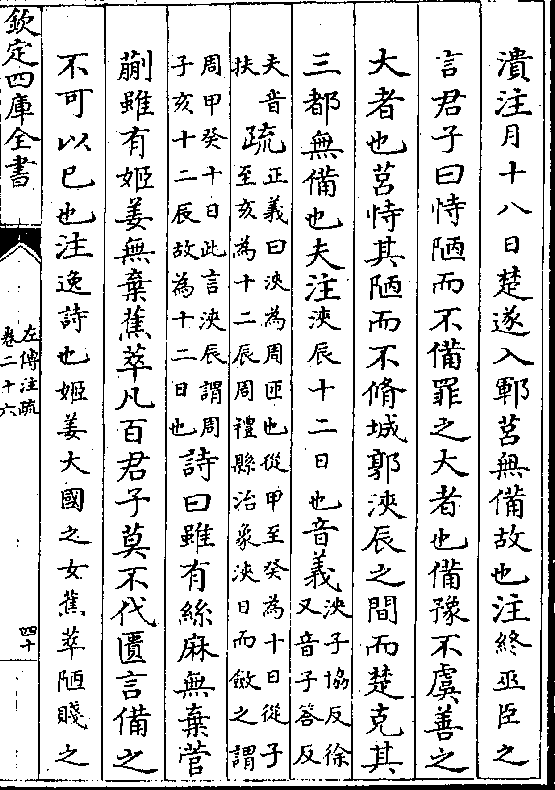 潰注月十八日楚遂入鄆莒無備故也注終巫臣之
言君子曰恃陋而不備罪之大者也備豫不虞善之
大者也莒恃其陋而不脩城郭浹辰之間而楚克其
三都無備也夫注浹辰十二日也音義浹子協反徐
又音子答反
夫音
扶疏正義曰浹為周匝也從甲至癸為十日從子
至亥為十二辰周禮縣治象浹日而斂之謂
周甲癸十日此言浹辰謂周
子亥十二辰故為十二日也詩曰雖有絲麻無棄菅
蒯雖有姬姜無棄蕉萃凡百君子莫不代匱言備之
不可以已也注逸詩也姬姜大國之女蕉萃陋賤之
欽定四庫全書
左傳注疏
卷二十六
四十